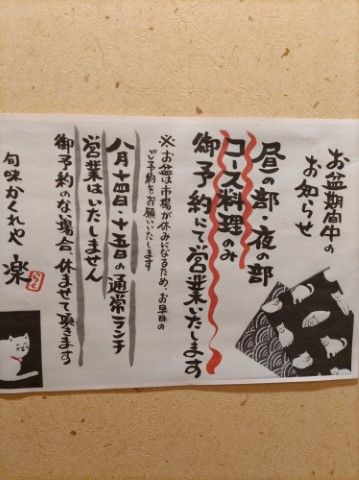 お盆期間中の
お知らせ
昼の部、夜の部
コース料理のみ
御予約にて営業いたします
※お盆は市場が休みになるため、お早目の
ご予約をお願いいたします
八月十四日・十五日の通常ランチ
営業はいたしません
御予約のない場合、休ませて頂きます
旬味かくれや 楽
らく